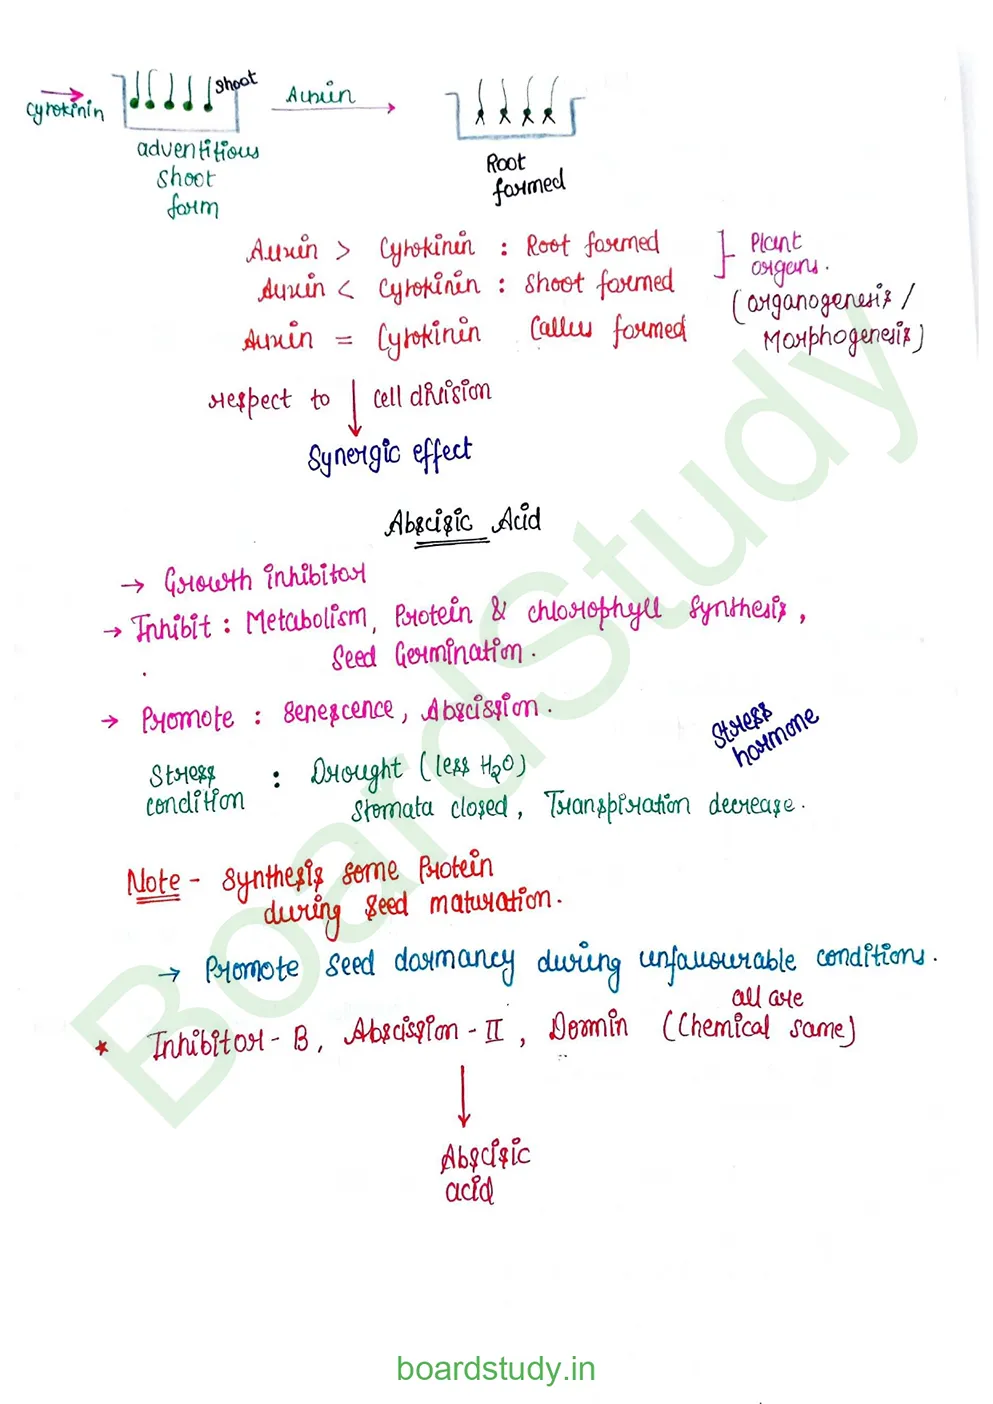 Cytokinin
Shoot
Auxin
adventitious
Shoot
form
Root
formed
Auxin > Cytokinin : Root formed
Auxin < Cytokinin : Shoot formed
Auxin = Cytokinin Callus formed
} Plant
organs.
(organogenesis /
Morphogenesis)
respect to ↓ cell division
Synergic effect
Abscisic Acid
→ Growth inhibitor
→ Inhibit : Metabolism, Protein & chlorophyll synthesis,
Seed Germination.
→ Promote : Senescence, Abscission.
Stress
hormone
Stress
condition : Drought (less H2O)
Stomata closed, Transpiration decrease.
Note - Synthesis some Protein
during seed maturation.
→ Promote seed dormancy during unfavourable conditions.
all are
* Inhibitor - B, Abscission - II, Dormin (Chemical same)
↓
Abscisic
acid
BoardStudy
boardstudy.in